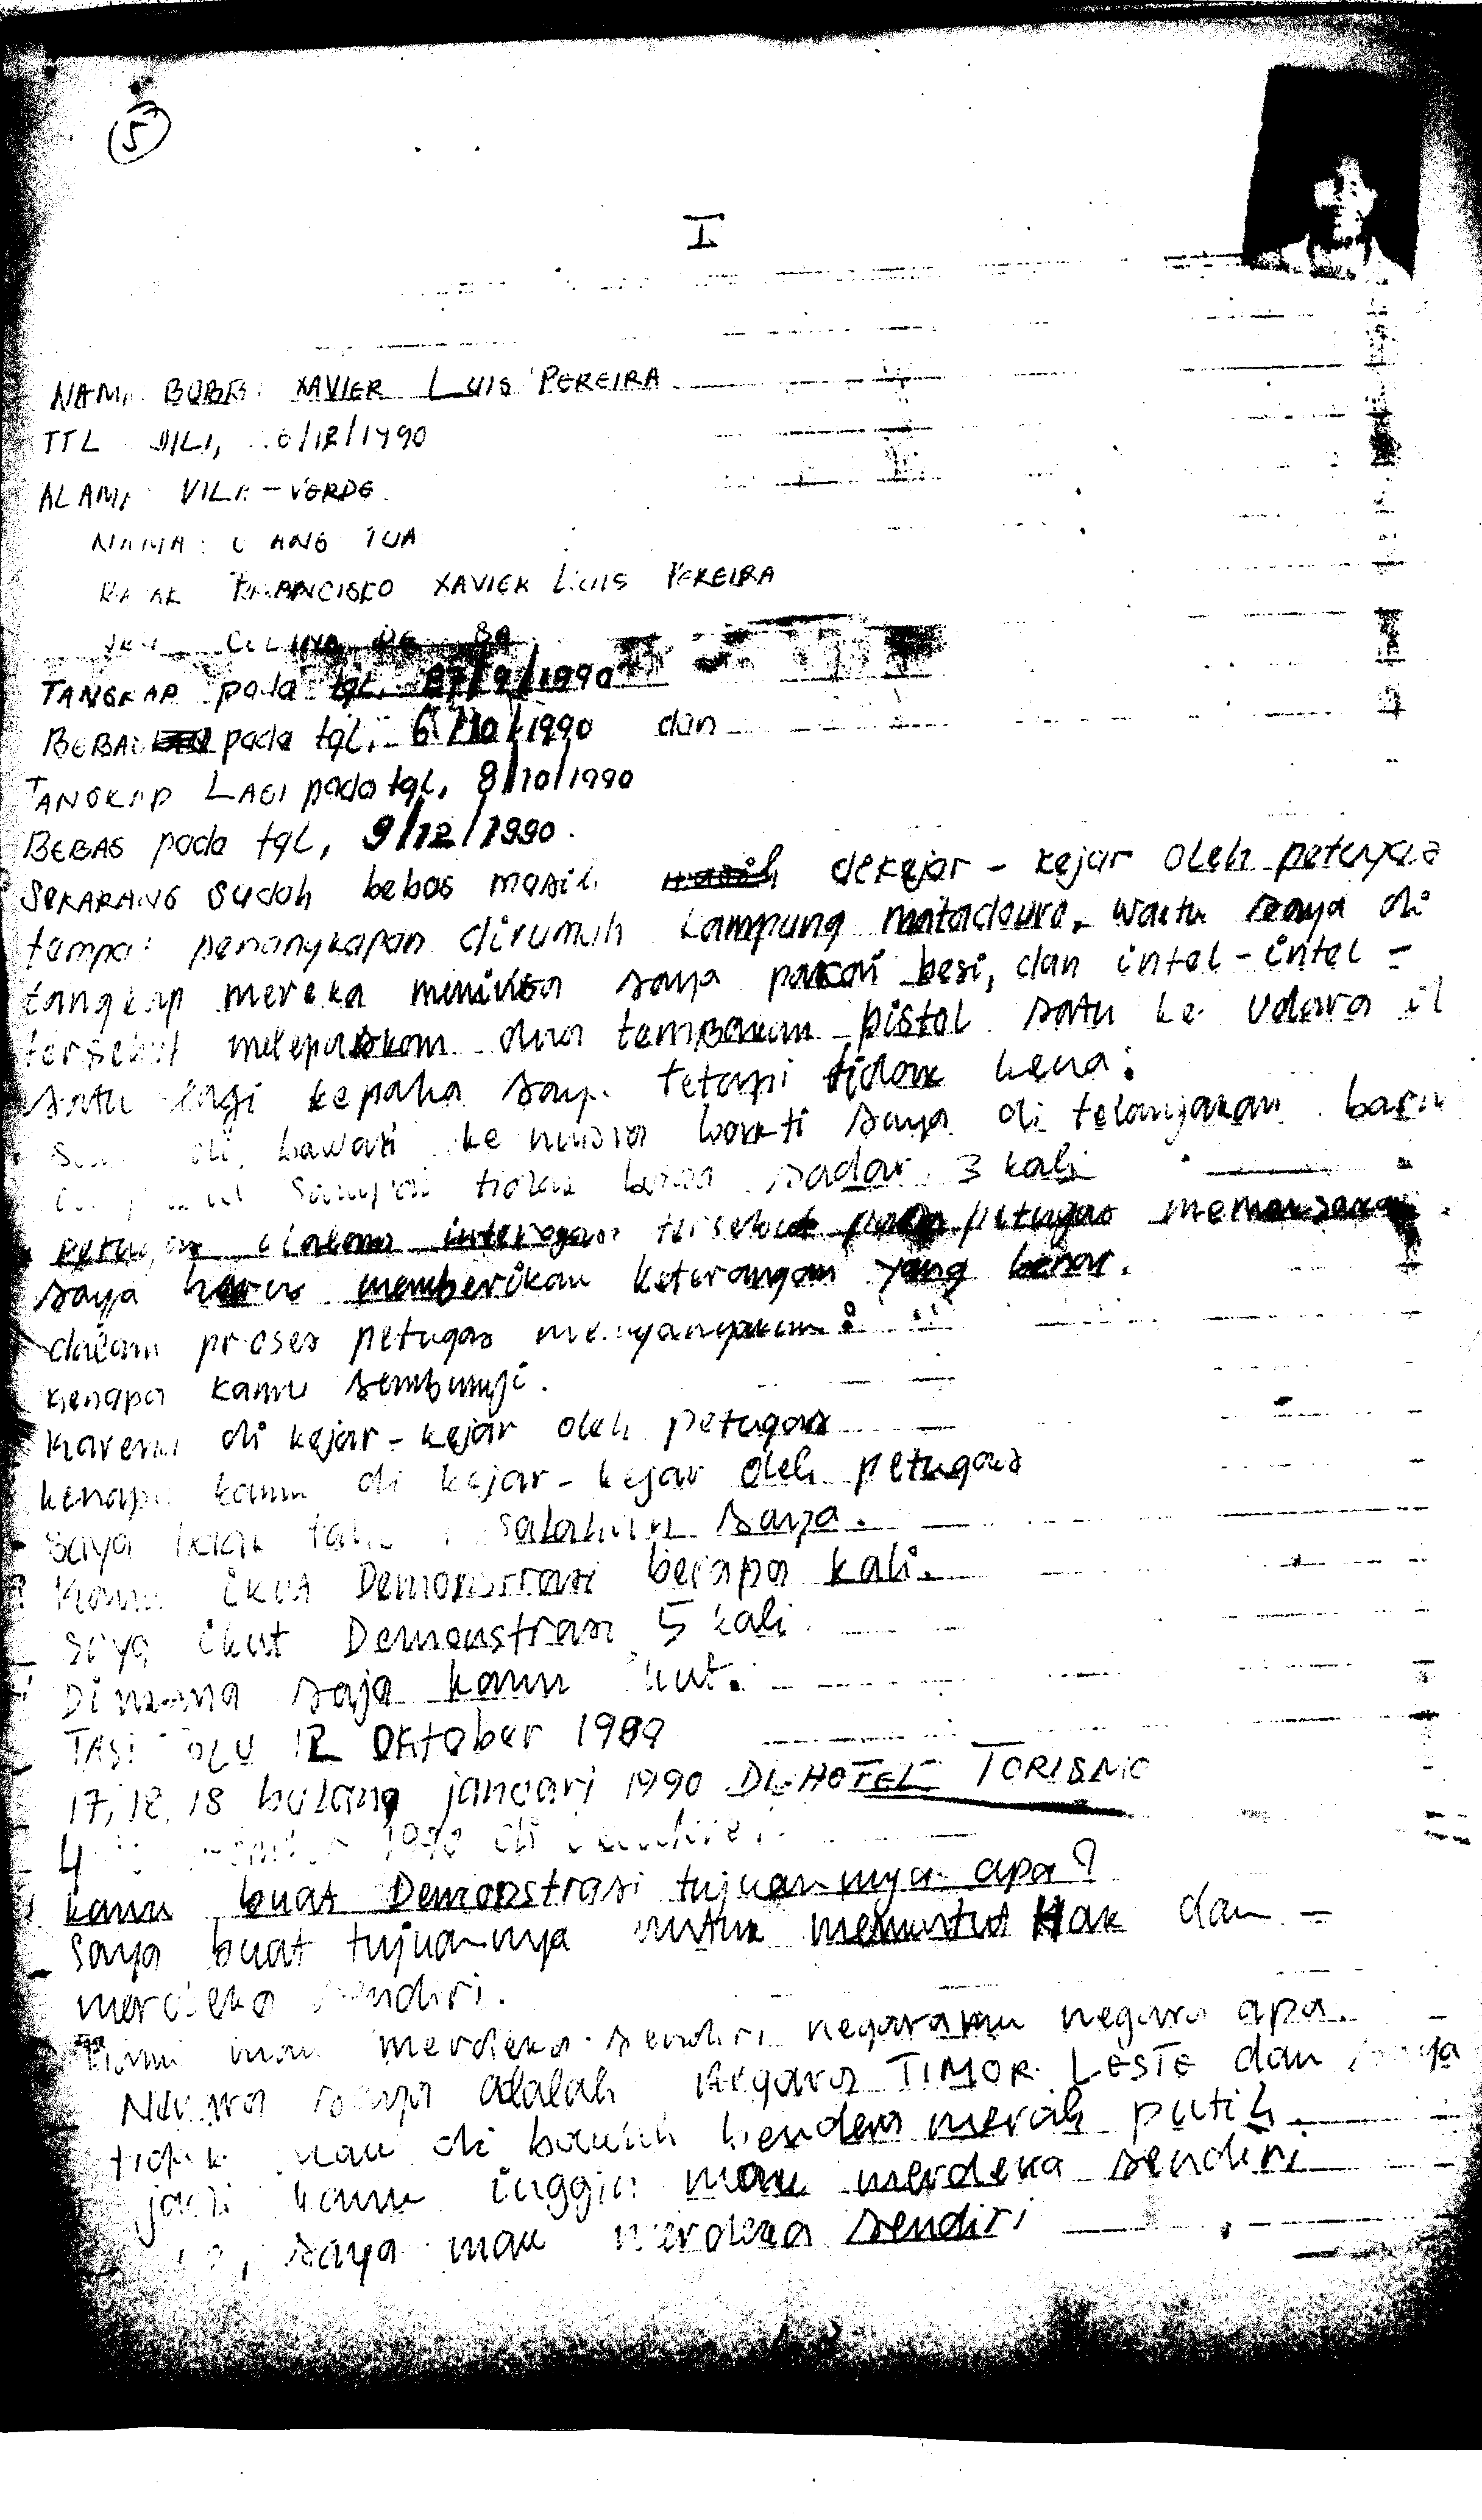 5
I
BOBB XAVIER LUIS PEREIRA
TTL DILI, 6/12/1990
VILA-VERDE
TUA
FRANCISCO XAVIER LUIS PEREIRA
CELINA DE
TANGKAP pada tgl, 27/9/1990
pada tgl, 6/10/1990 dan
TANGKAP LAGI pada tgl, 8/10/1990
BEBAS pada tgl, 9/12/1990.
SEKARANG sudah bebas masih dekejar-kejar oleh petugas
penangkapan dirumah kampung matadouro. waktu saya di
tangkap mereka meniksa saya pakai besi, dan intel-intel -
tersebut melepaskan dua tembakan pistol satu ke udara
satu lagi kepada saya tetapi tidak kena.
di bawah ke saya di telanjakan baru
sampai tidak bisa sadar 3 kali
petugas dalam interogasi tersebut petugas memaksakan
saya harus memberikan keterangan yang benar.
dalam proses petugas menyanyakan:
kenapa kamu sembunyi.
karena di kejar-kejar oleh petugas
kenapa kamu di kejar-kejar oleh petugas
saya tidak tahu salahan saya.
Kamu ikut Demonstrasi berapa kali.
saya ikut Demonstrasi 5 kali.
Dimana saja kamu ikut.
TASI TOLU 12 Oktober 1989
17, 18, 18 bulang januari 1990 DI-HOTEL TORISMO
4 1990 di
kamu buat Demonstrasi tujuannya apa?
saya buat tujuannya untuk menuntut Hak dan -
merdeka sendiri.
kamu mau merdeka sendiri negaramu negara apa.
Negara saya adalah Negara TIMOR LESTE dan saya
tidak mau di bawah bendera merah putih.
jadi kamu inggin mau merdeka sendiri
saya mau merdeka sendiri